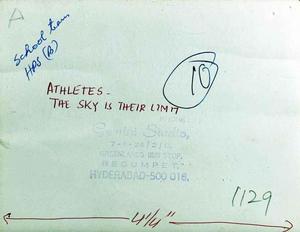 A
School team
HPS (B)
10
ATHLETES -
THE SKY IS THEIR LIMIT
Gemini Studio,
GREENLANDS BUS STOP,
BEGUMPET,
HYDERABAD-500 016.
1129
4¼"